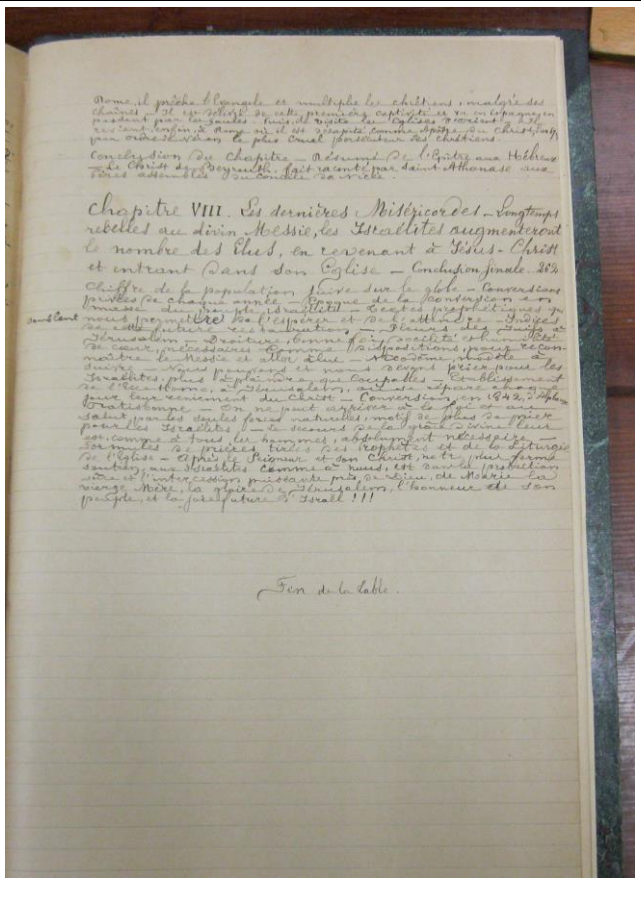 Rome, il prêche l'Evangile et multiplie les chrétiens, malgré ses
chaînes — Il est délivré de cette première captivité et va en Espagne en
passant par la Gaule. Puis, il visite les Eglises d'Orient et il
revient, enfin, à Rome où il est décapité, comme Apôtre du Christ,
par ordre de Néron le plus cruel persécuteur des chrétiens.
Conclusion du Chapitre — Résumé de l'Epitre aux Hébreux
— Le Christ de Beyrouth, fait raconté par Saint Athanase aux
Pères assemblés du Concile de Nicée.
Chapitre VIII. Les dernières Miséricordes — Longtemps
rebelles au divin Messie, les Israélites augmenteront
le nombre des Elus, en revenant à Jésus-Christ
et entrant dans son Eglise — Conclusion finale. 262
Chiffre de la population juive sur le globe — Conversions
privées de chaque année — Epoque de la conversion en
masse du peuple israélite — Textes prophétiques qui
nous permettent de l'espérer et de l'attendre — Indices
de cette future restauration — Pleurs des Juifs à
Jérusalem — Droiture, bonne foi, docilité et humilité
de cœur, nécessaires comme dispositions, pour recon-
naître le Messie et aller à lui — Nicodème, modèle à
suivre — Nous pouvons et nous devons prier pour les
Israélites, plus à plaindre que coupables — Etablissement
de l'Ecce-Homo, à Jérusalem, où se répare chaque
jour leur reniement du Christ — Conversion, en 1842, d'Alphonse
Ratisbonne — On ne peut arriver à la foi et au
salut, par les seules forces naturelles, motif de plus de prier
pour les Israélites — Le secours de la grâce divine leur
est, comme à tous les hommes, absolument nécessaire —
Formules de prières tirées des Prophètes et de la Liturgie
de l'Eglise — Après le Seigneur et son Christ, notre plus ferme
soutien, aux Israélites comme à nous, est dans la protection
sûre et l'intercession puissante près de Dieu, de Marie la
vierge Mère, la gloire de Jérusalem, l'honneur de son
peuple, et la joie future d'Israël !!!
Fin de la table.